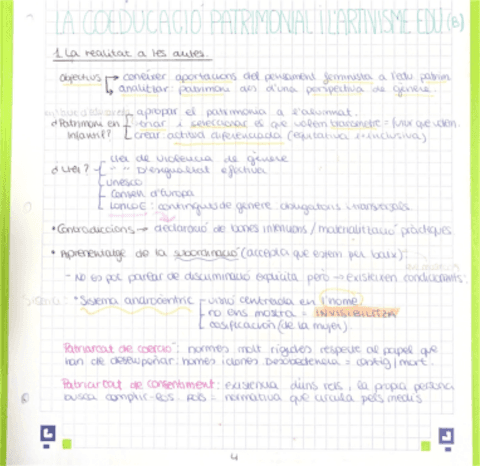 LA COEDUCACIÓ PATRIMONIAL I L'ARTIVISME EDU (B)
1. La realitat a les aules.
objectius → conèixer aportacions del pensament feminista a l'edu patrim
analitzar patrimoni des d'una perspectiva de gènere.
apropar el patrimonia a l'alumnat.
¿Patrimoni en Infantil? triar i seleccionar es que volem transmetre = futur que volem.
crear: activitat diferenciada (equitativa i inclusiva)
Llei de violència de gènere
" " D'esigualtat efectiva
Unesco
Consell d'Europa
LOMLOE: continguts de gènere obligatoris i transversals
• Contradiccions → declaració de bones intencions / materialització pràctiques
• Aprenentatge de la subordinació (accepta que estem per baix)
- No es pot parlar de discriminació explícita però → existeixen condicionants:
• Sistema androcèntric visió centrada en l'home
no ens mostra = INVISIBILITZA
cosificación (de la mujer)
Patriarcat de coerció: normes molt rígides respecte al paper que
han de desempeñar: homes i dones Desobediència = castig / mort.
Patriarcat de consentiment: existeixa dins rols, la propia persona
busca complir-los. rols = normativa que circula pels medis
4